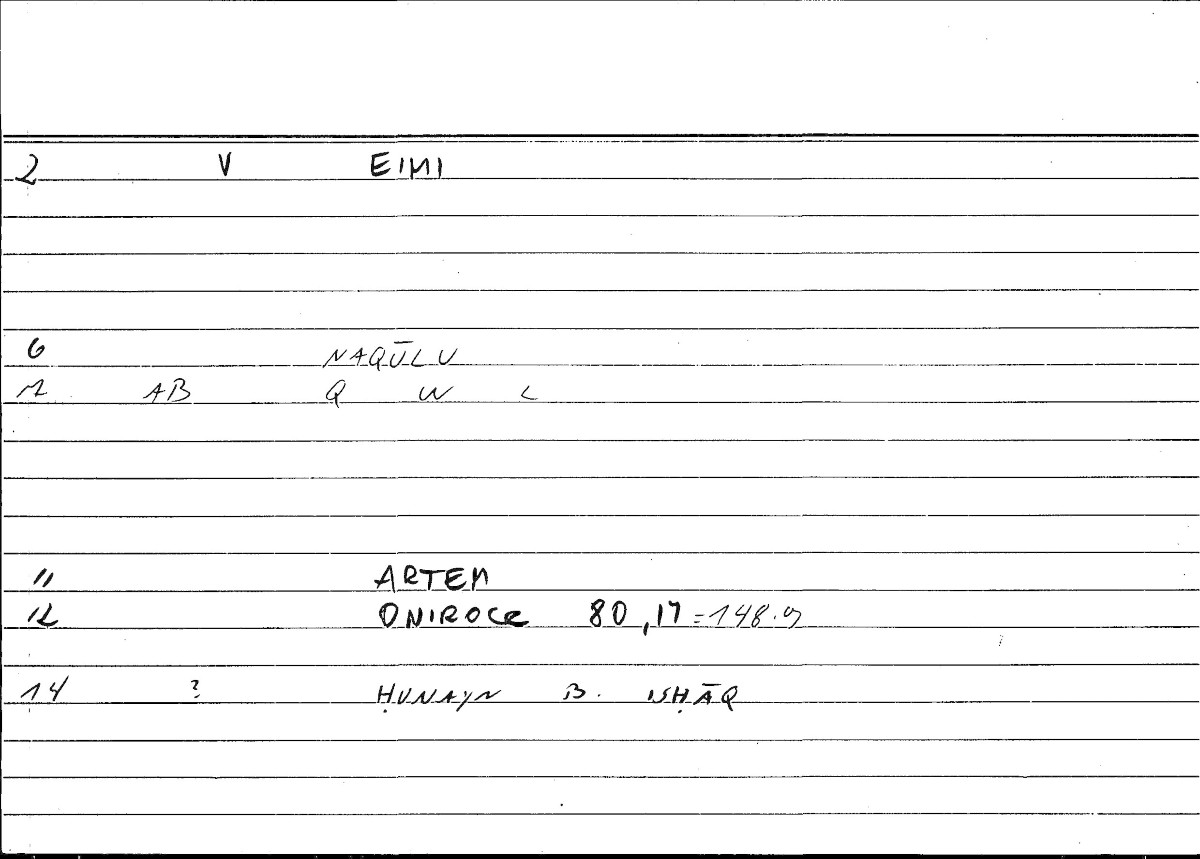 2 V EIMI
6 NAQŪLU
7 AB Q W L
11 ARTEM
12 ONIROCR 80,17 = 148.9
14 ? ḤUNAYN B. ISḤĀQ